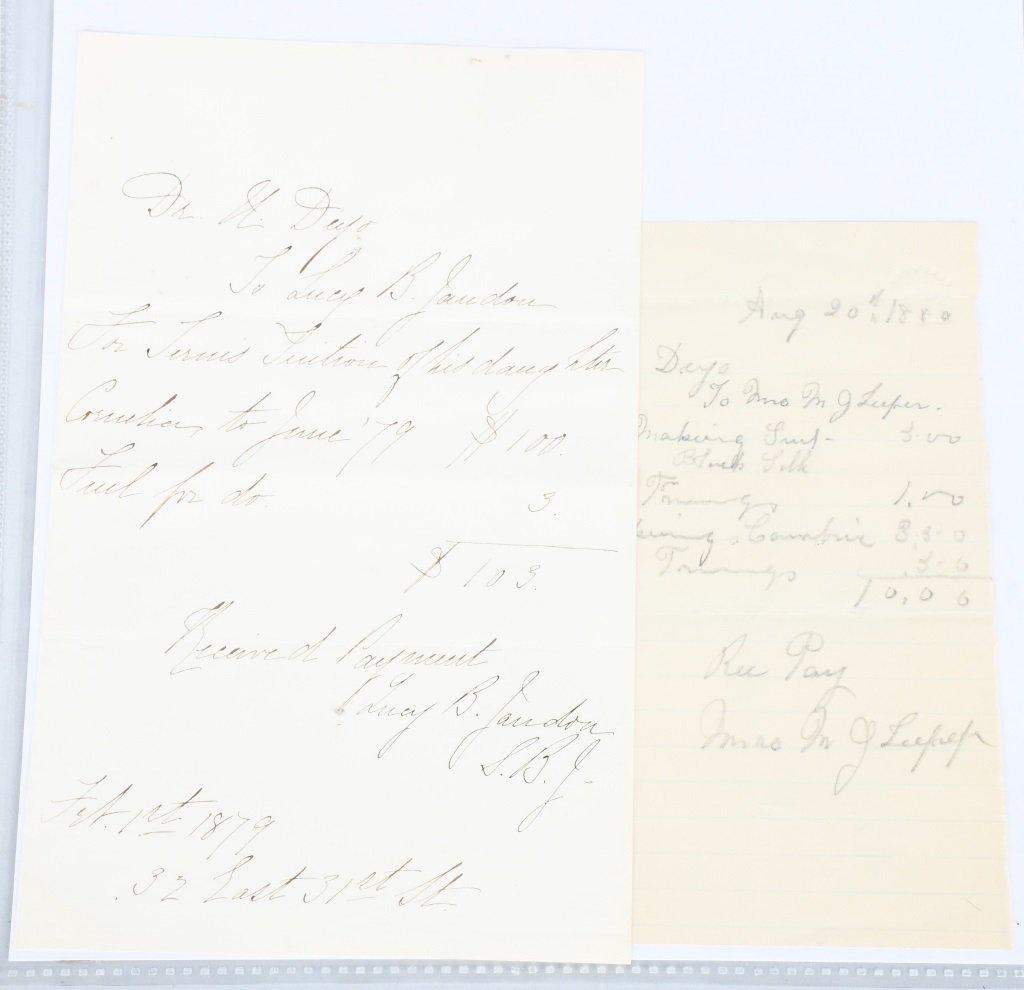 Dr. H. Deyo
To Lucy B. Jaudon
For Term's Tuition of his daughter
Cornelia, to June '79 $100.
Fuel for do. 3.
$103.
Received Payment
Lucy B. Jaudon
S.B.J.
Feb. 1st 1879
32 East 31st St.
Aug 20th 1880
Deyo
To Mrs M J Leeper.
Making Suit 5.00
Black Silk
1.00
3.50
.50
10.00
Rec Pay
Mrs M J Leeper